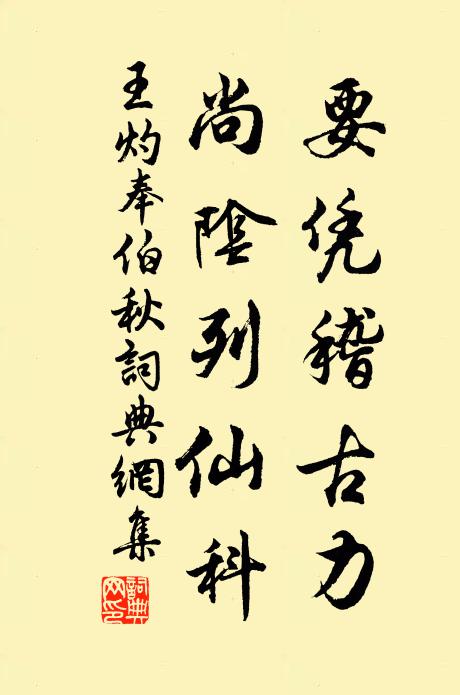 要凭稽古力
尚陰列仙科
王灼奉伯秋詞典網集
詞典網印